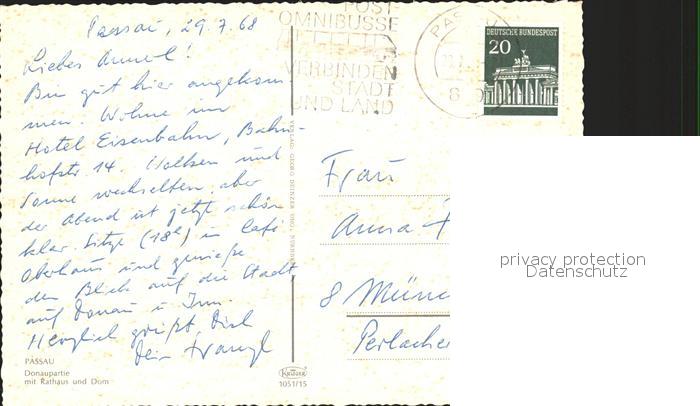 Passau, 29.7.68
Liebes Annerl!
Bin gut hier angekom-
men. Wohne im
Hotel Eisenbahn, Bahn-
hofstr. 14. Wolken und
Sonne wechselten, aber
der Abend ist jetzt schön
klar. Sitze (18h) in Café
Oberhaus und genieße
den Blick auf die Stadt
auf Donau u. Inn.
Herzlich grüßt Dich
Dein Franzl
PASSAU
Donaupartie
mit Rathaus und Dom
POST-
OMNIBUSSE
VERBINDEN
STADT
UND LAND
PASSAU
8
DEUTSCHE BUNDESPOST
20
Frau
Anna
8 Münc
Perlacher
Krüger
1051/15
privacy protection
Datenschutz